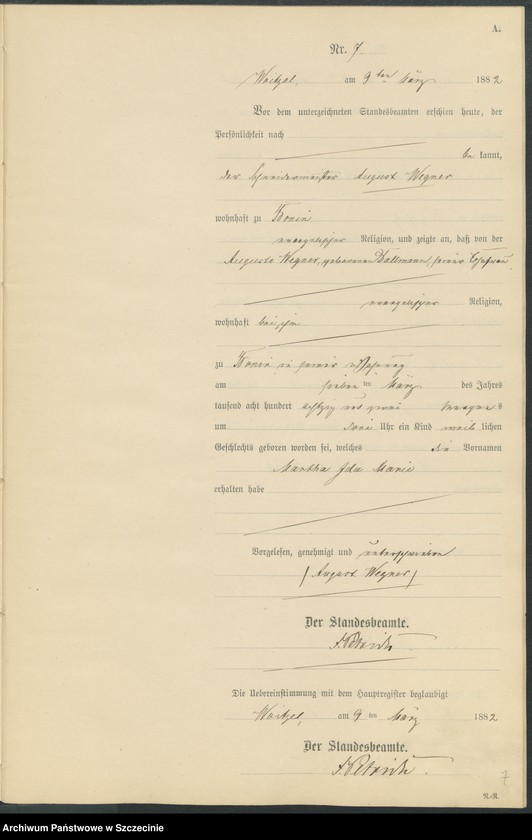 A.
Nr. 7
Woitzel, am 9ten März 1882
Vor dem unterzeichneten Standesbeamten erschien heute, der
Persönlichkeit nach
be kannt,
der Schneidermeister August Wegner
wohnhaft zu Konin
evangelischer Religion, und zeigte an, daß von der
Auguste Wegner, geborenen Dallmann, seiner Ehefrau
evangelischer Religion,
wohnhaft bei ihm
zu Konin in seiner Wohnung
am sieben ten März des Jahres
tausend acht hundert achtzig und zwei Morgens
um drei Uhr ein Kind weib lichen
Geschlechts geboren worden sei, welches die Vornamen
Martha Ida Marie
erhalten habe
Vorgelesen, genehmigt und unterschrieben
(August Wegner)
Der Standesbeamte.
Die Uebereinstimmung mit dem Hauptregister beglaubigt
Woitzel, am 9 ten März 1882
Der Standesbeamte.
7
N.-R.
Archiwum Państwowe w Szczecinie